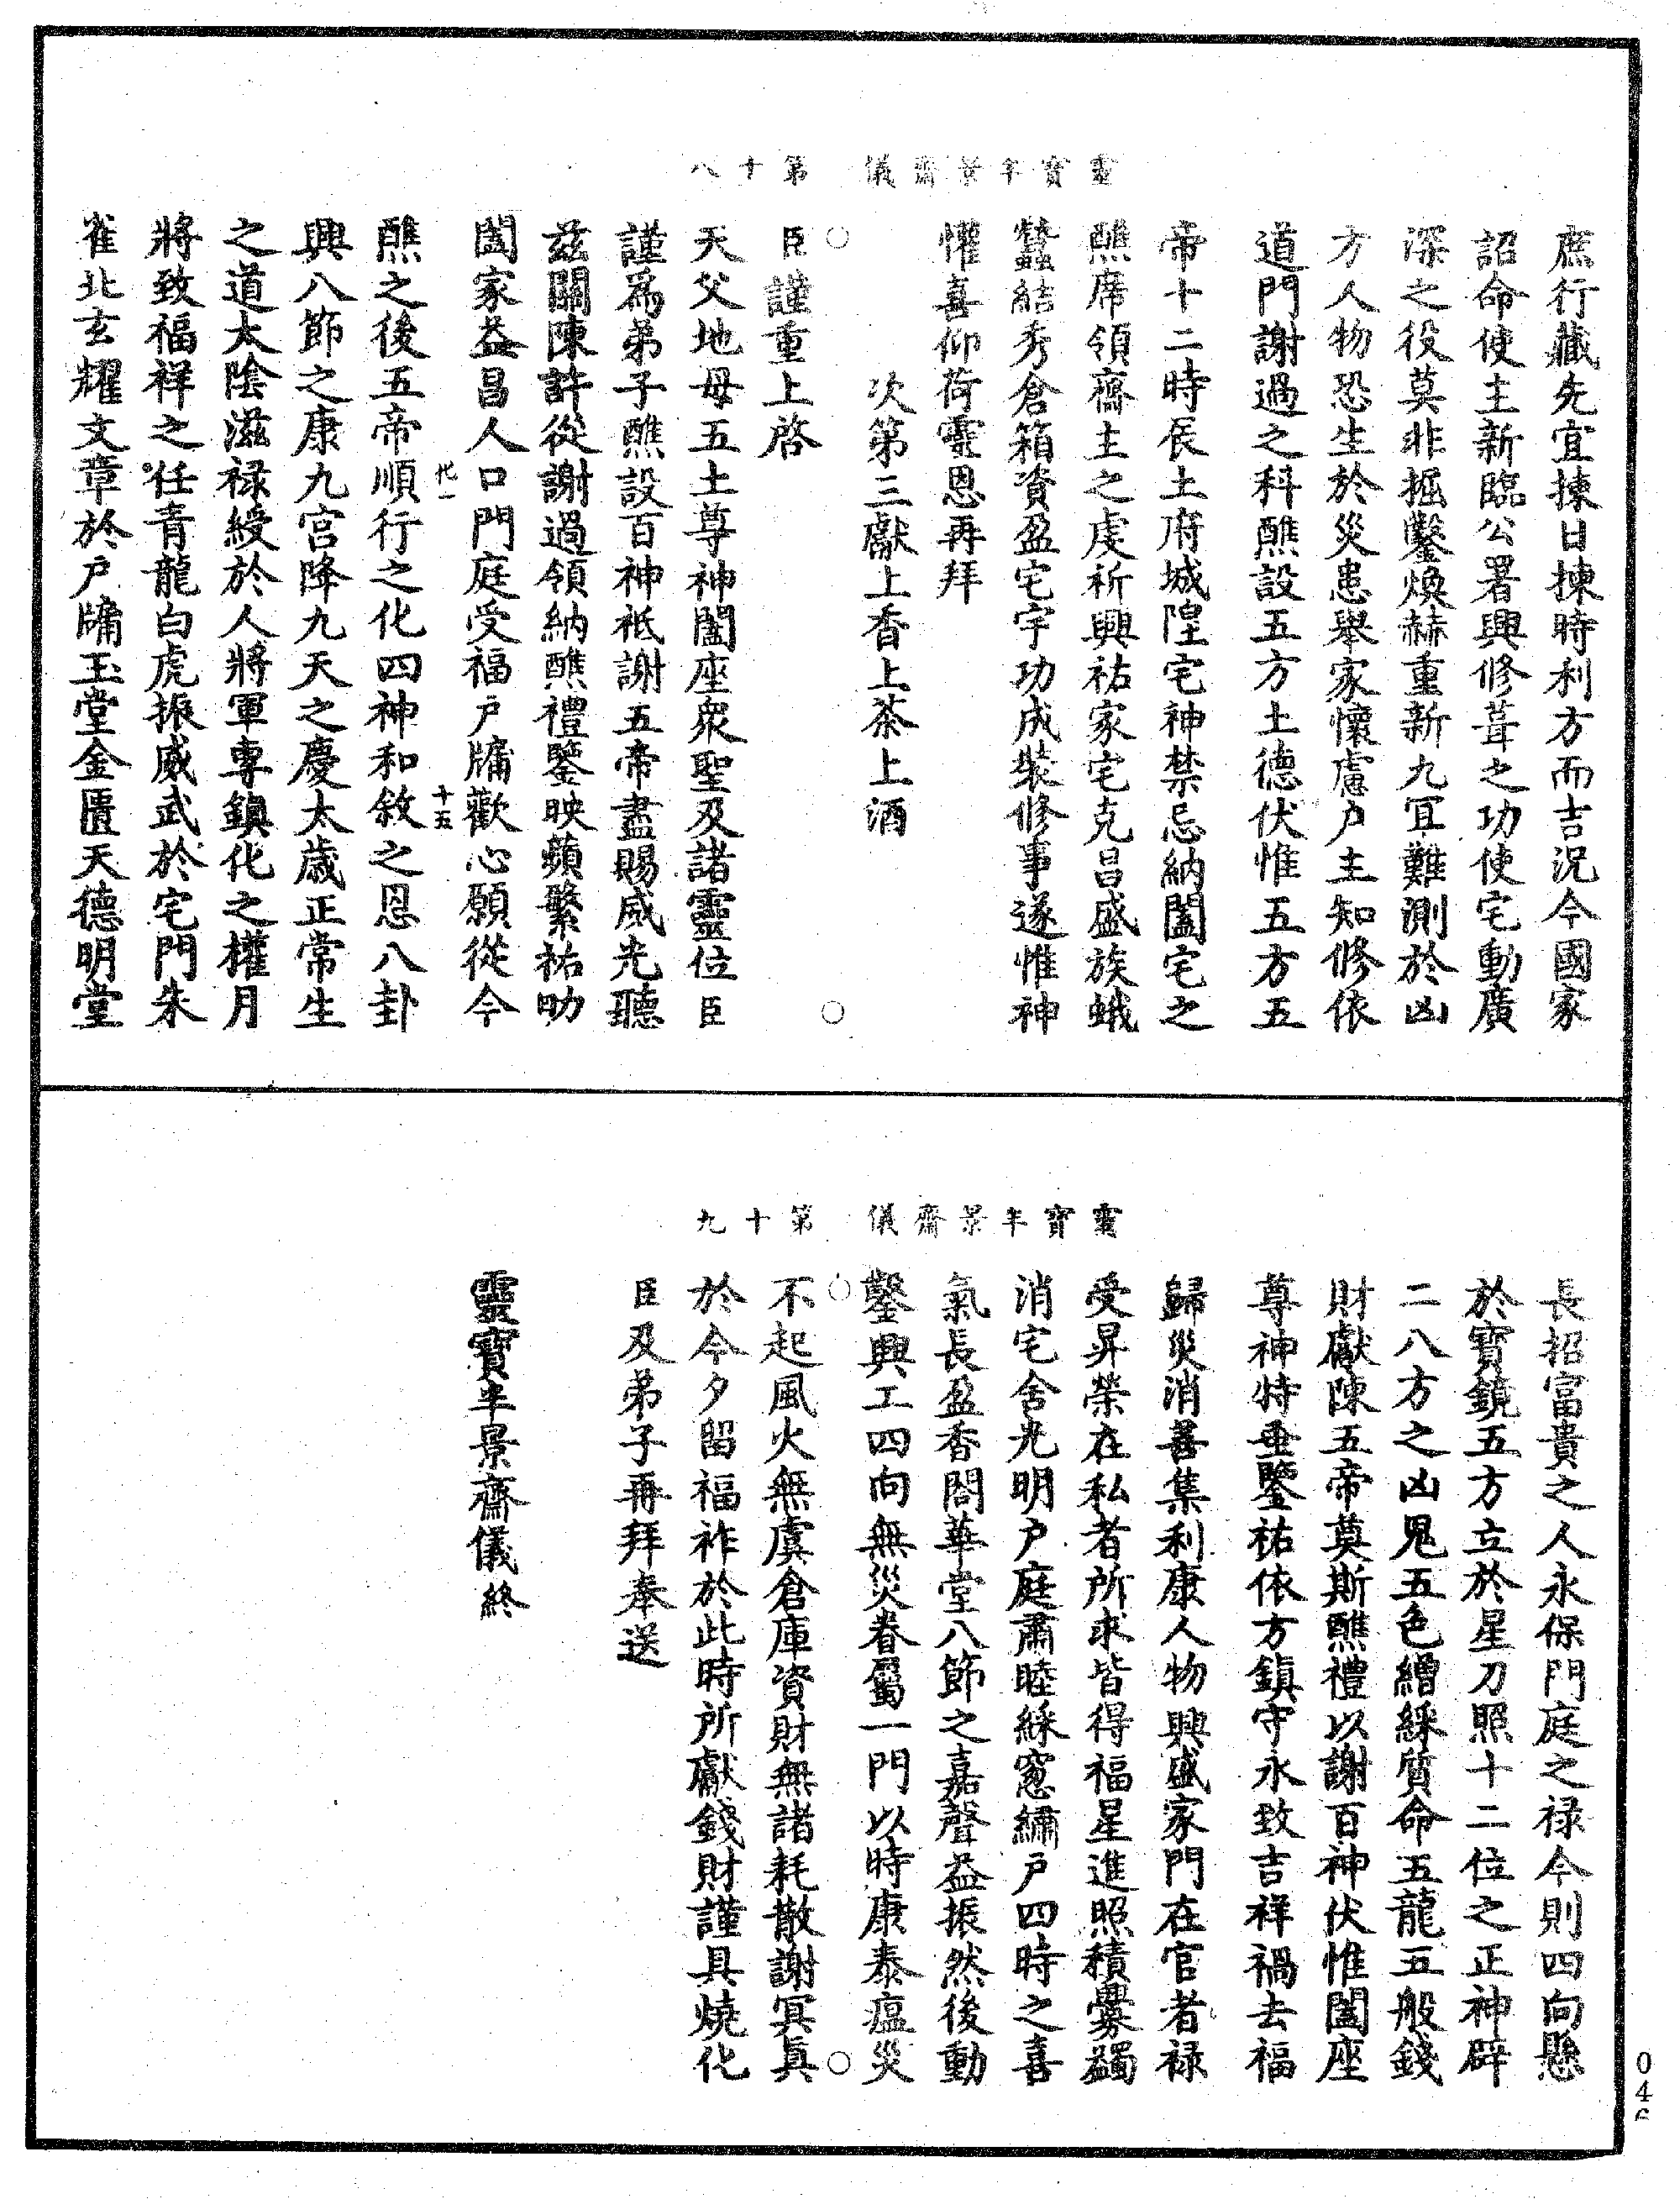 靈寶半景齋儀 第十八
庶行藏先宜揀日揀時利方而吉況今國家
詔命使主新臨公署興修葺之功使宅動廣
深之役莫非掘鑿煥赫重新九冝難測於凶
方人物恐生於災患舉家懷慮户主知修依
道門謝過之科醮設五方土德伏惟五方五
帝十二時辰土府城隍宅神禁忌納闔宅之
醮席領齋主之虔祈興祐家宅克昌盛族蛾
蠶結秀倉箱資盈宅宇功成裝修事遂惟神
懽喜仰荷靈恩再拜
次第三獻上香上茶上酒
臣謹重上啓
天父地母五土尊神闔座衆聖及諸靈位臣
謹爲弟子醮設百神祗謝五帝盡賜威光聽
兹關陳許從謝過領納醮禮鑒映蘋蘩祐助
闔家益昌人口門庭受福户牖歡心願從今
代一 十五
醮之後五帝順行之化四神和敘之恩八卦
興八節之康九宫降九天之慶太歲正常生
之道太陰滋禄綬於人將軍專鎮化之權月
將致福祥之任青龍白虎振威武於宅門朱
雀北玄耀文章於户牖玉堂金匱天德明堂
靈寶半景齋儀 第十九
長招富貴之人永保門庭之禄今則四向懸
於寶鏡五方立於星刀照十二位之正神辟
二八方之凶鬼五色繒綵質命五龍五般錢
財獻陳五帝奠斯醮禮以謝百神伏惟闔座
尊神特垂鑒祐依方鎮守永致吉祥禍去福
歸災消善集利康人物興盛家門在官者禄
受昇榮在私者所求皆得福星進照積釁蠲
消宅舍光明户庭肅睦綵窓繡户四時之喜
氣長盈香閤華堂八節之嘉聲益振然後動
鑿興工四向無災眷屬一門以時康泰瘟災
不起風火無虞倉庫資財無諸耗散謝冥真
於今夕留福祚於此時所獻錢財謹具燒化
臣及弟子再拜奉送
靈寶半景齋儀終
046